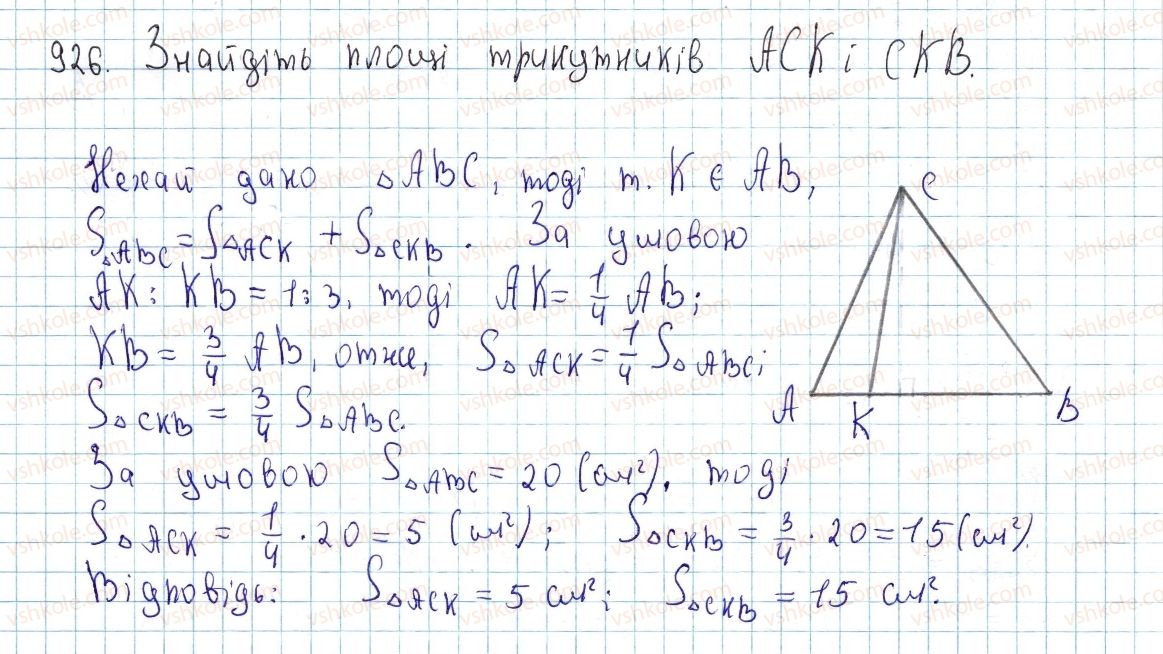 926. Знайдіть площі трикутників ACK і CKB.
Нехай дано △ABC, тоді т. K є AB,
S△ABC = S△ACK + S△CKB. За умовою
AK : KB = 1:3, тоді AK = 1/4 AB;
KB = 3/4 AB, отже, S△ACK = 1/4 S△ABC;
S△CKB = 3/4 S△ABC.
За умовою S△ABC = 20 (см²), тоді
S△ACK = 1/4 · 20 = 5 (см²); S△CKB = 3/4 · 20 = 15 (см²).
Відповідь: S△ACK = 5 см²; S△CKB = 15 см².
C
A
K
B
vshkole.com